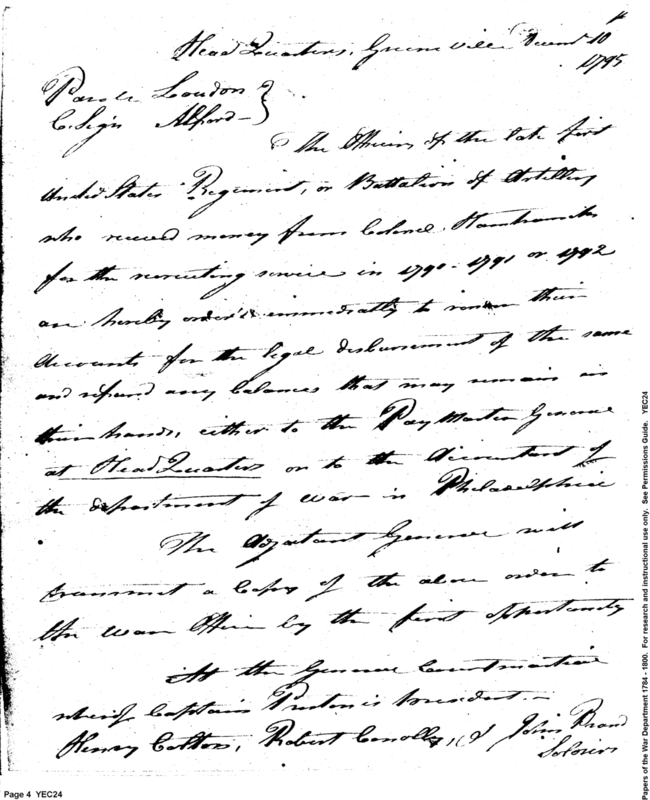 Head Quarters, Greene ville Decemr 10th
1795
Parole Loudon }
C. Sign Alford — }
The Officers of the late first
United States Regiment, or Battalion of Artillery
who received money from Colonel Hamtramck
for the recruiting service in 1790 - 1791 or 1792
are hereby order'd immediately to render their
Accounts for the legal disbursement of the same
and refund any balances that may remain in
their hands, either to the Pay Master General
at Head Quarters or to the Accountant of
the department of War in Philadelphia
The Adjutant General will
transmit a Copy of the above order to
the War Office by the first opportunity
At the General Court martial
whereof Captain Preston is President. —
Henry Colton, Robert Conolly, & John
Soldiers
Page 4 YEC24
Papers of the War Department 1784 - 1800. For research and instructional use only. See Permissions Guide. YEC24